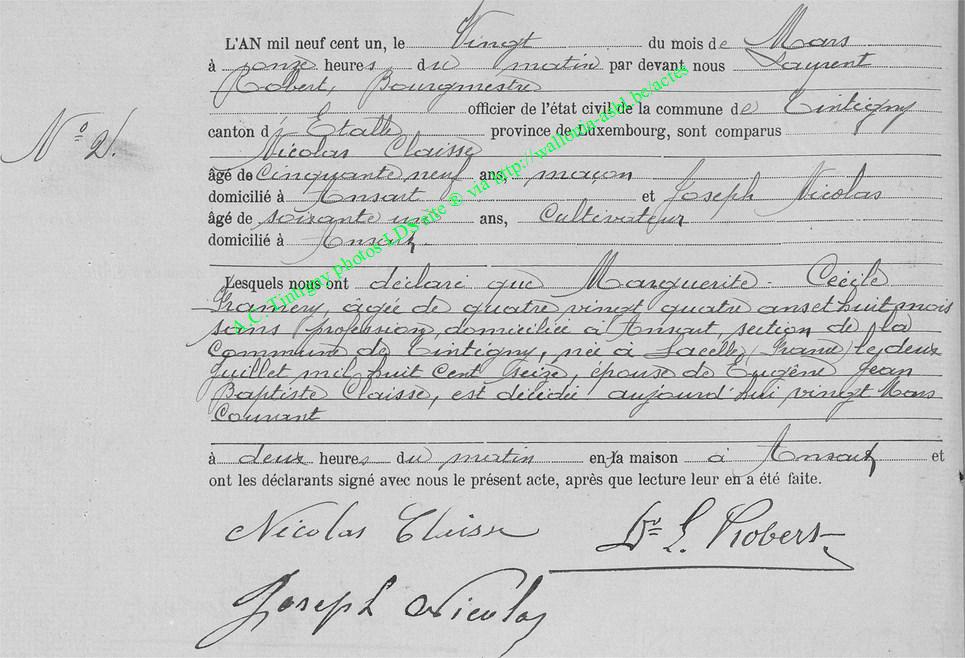 L'AN mil neuf cent un, le Vingt du mois de Mars
à onze heures du matin par devant nous Laurent
Robert, Bourgmestre
officier de l'état civil de la commune de Tintigny
canton d' Etalle province de Luxembourg, sont comparus
Nicolas Claisse
âgé de Cinquante neuf ans, maçon
domicilié à Ansart et Joseph Nicolas
âgé de soixante un ans, Cultivateur
domicilié à Ansart.
Lesquels nous ont déclaré que Marguerite - Cécile
âgée de quatre vingt quatre ans et huit mois
sans profession, domiciliée à Ansart, section de la
Commune de Tintigny, née à (France) le deux
Juillet mil huit Cent Seize, épouse de Eugène Jean
Baptiste Claisse, est décédée aujourd'hui vingt Mars
Courant
à deux heures du matin en la maison à Ansart et
ont les déclarants signé avec nous le présent acte, après que lecture leur en a été faite.
N° 2.
Nicolas Claisse Dr L. Robert
Joseph Nicolas
A.C. Tintigny photos LDS site ® via http://wallonia-asbl.be/actes